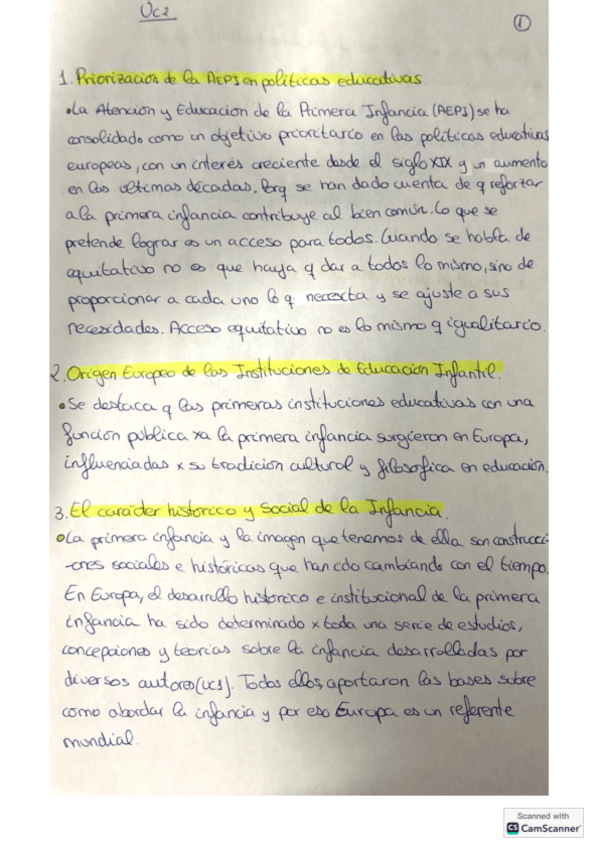 UC2
1
1. Priorización de la AEPI en políticas educativas
•La Atención y Educación de la Primera Infancia (AEPI) se ha
consolidado como un objetivo prioritario en las políticas educativas
europeas, con un interés creciente desde el siglo XIX y un aumento
en las últimas décadas. Porq se han dado cuenta de q reforzar
a la primera infancia contribuye al bien común. Lo que se
pretende lograr es un acceso para todos. Cuando se habla de
equitativo no es que haya q dar a todos lo mismo, sino de
proporcionar a cada uno lo q necesita y se ajuste a sus
necesidades. Acceso equitativo no es lo mismo q igualitario.
2. Origen Europeo de las Instituciones de Educación Infantil.
•Se destaca q las primeras instituciones educativas con una
función pública xa la primera infancia surgieron en Europa,
influenciadas x su tradición cultural y filosófica en educación.
3. El carácter histórico y Social de la Infancia.
•La primera infancia y la imagen que tenemos de ella son construcci-
-ones sociales e históricas que han ido cambiando con el tiempo.
En Europa, el desarrollo histórico e institucional de la primera
infancia ha sido determinado x toda una serie de estudios,
concepciones y teorías sobre la infancia desarrolladas por
diversos autores (UC1). Todos ellos, aportaron las bases sobre
como abordar la infancia y por eso Europa es un referente
mundial.
Scanned with
CS CamScanner